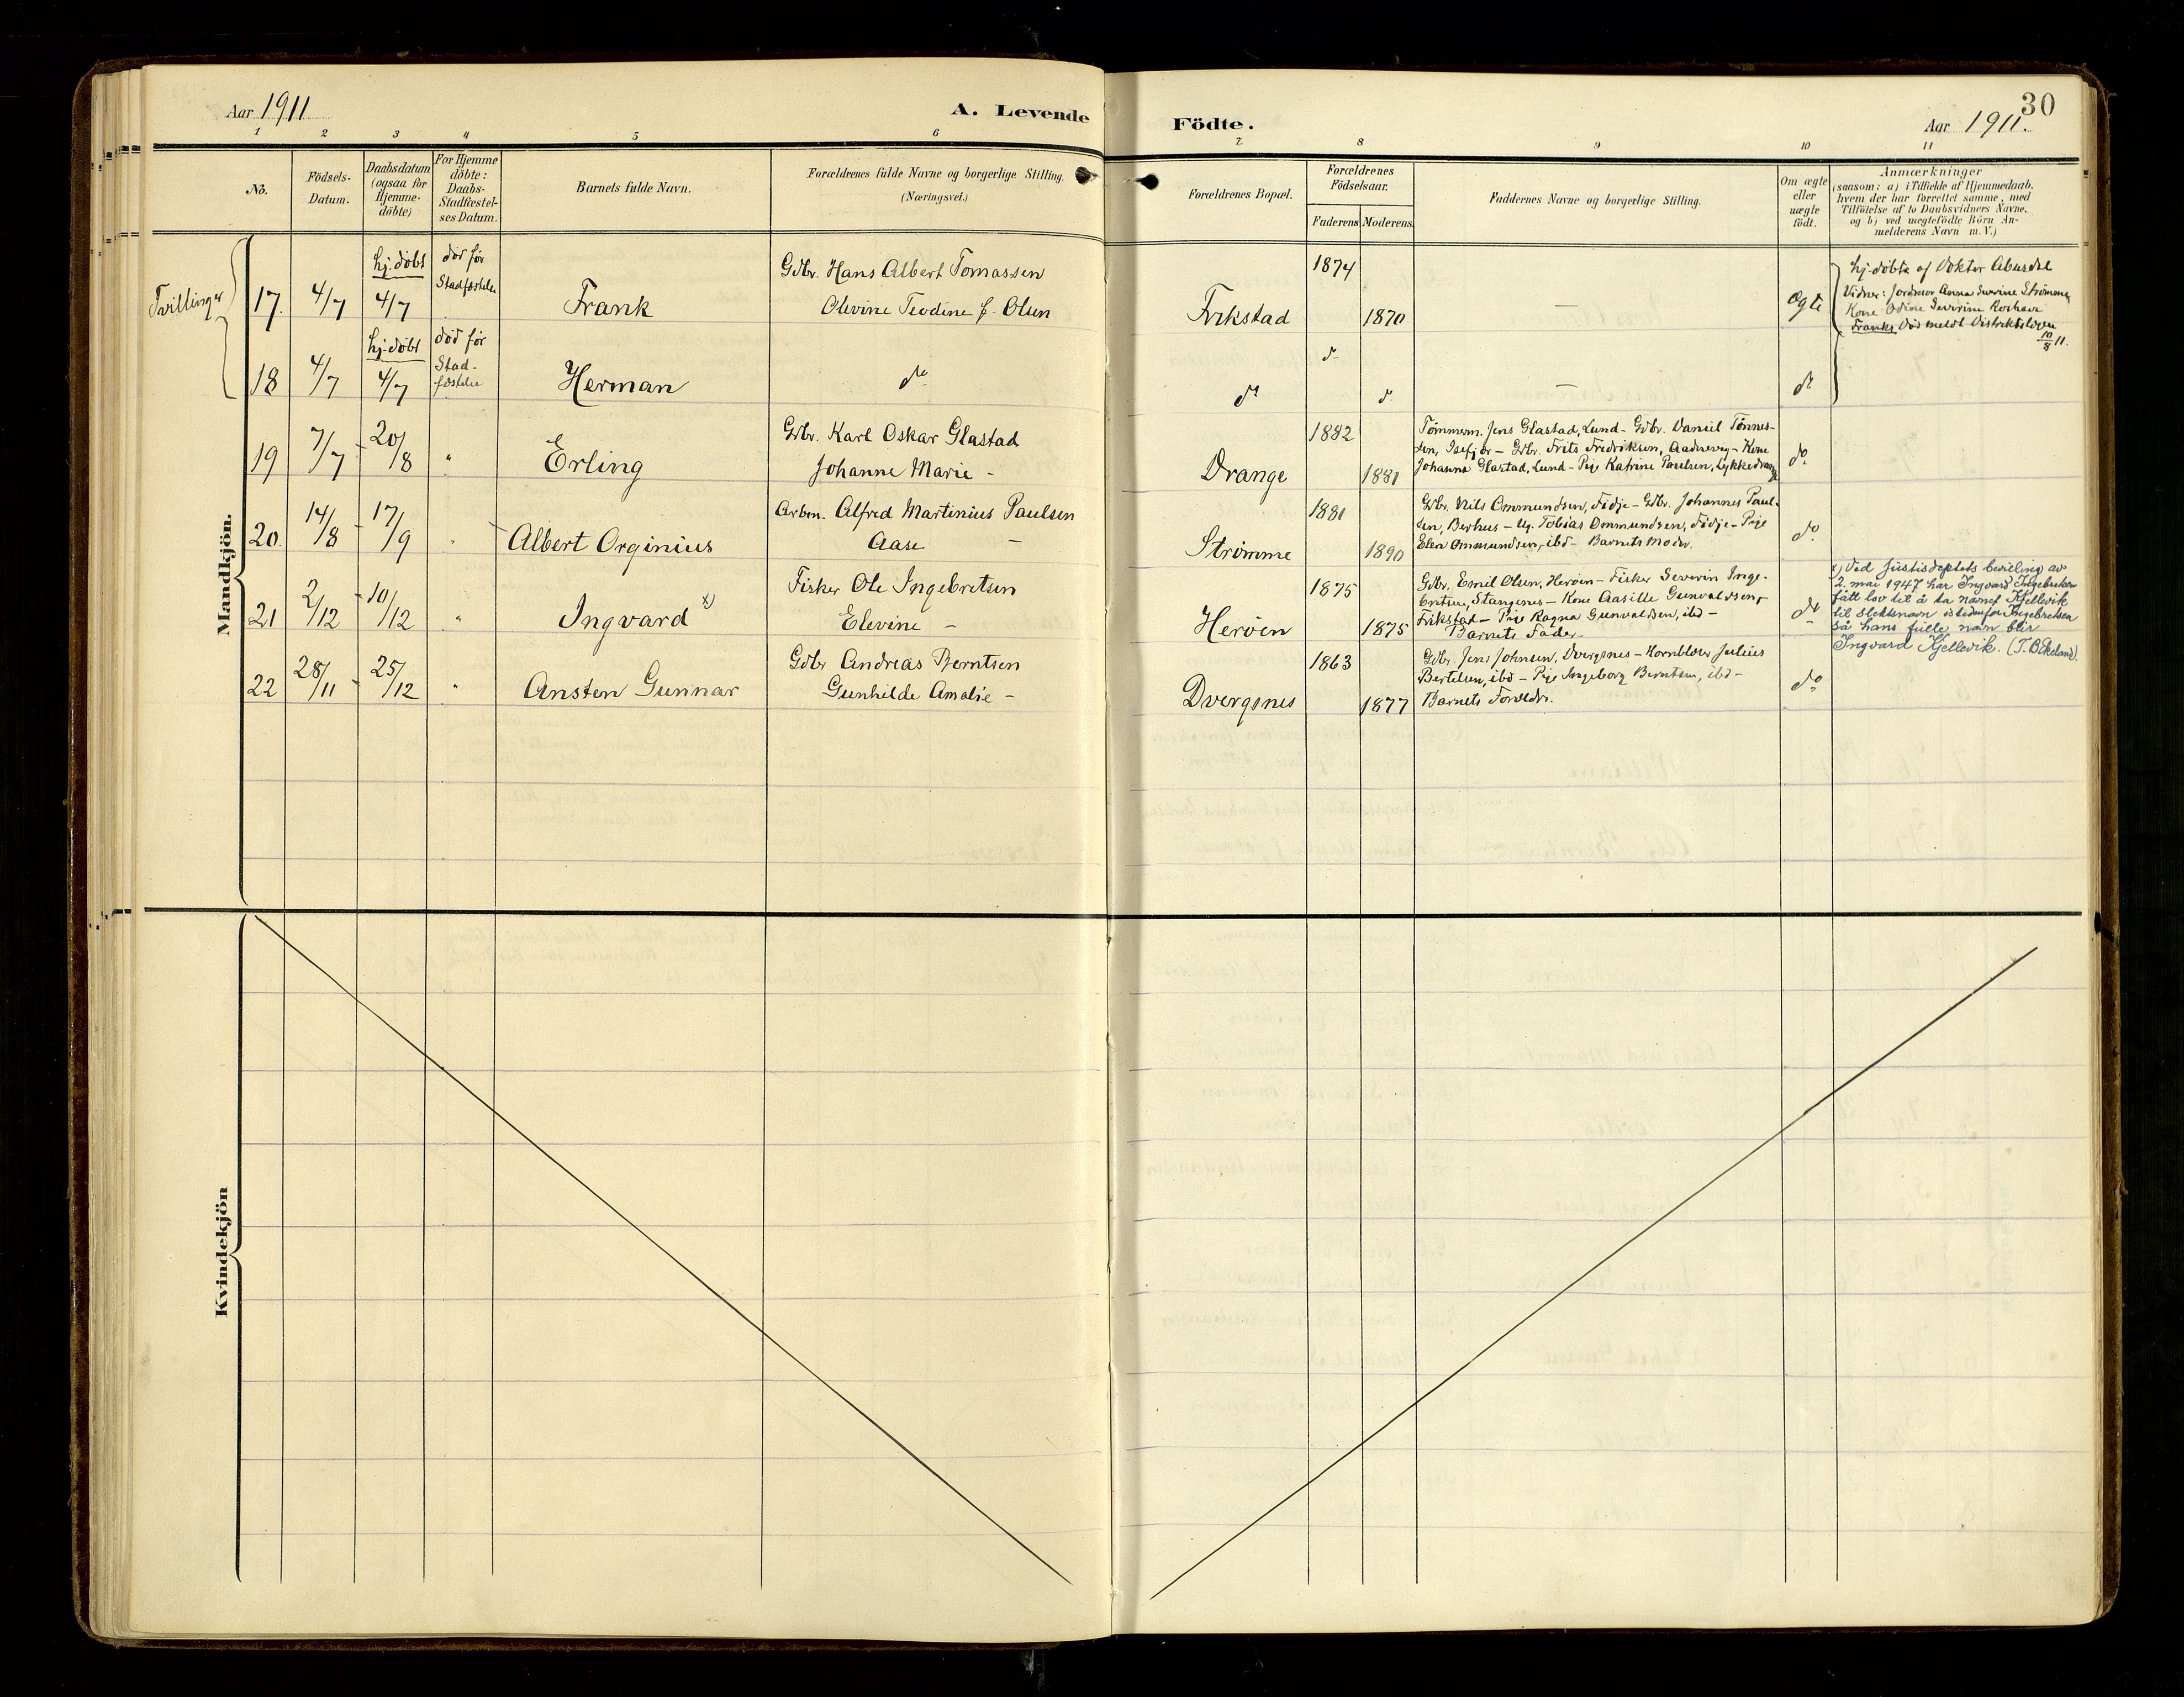 30
Aar 1911
A. Levende
Födte.
Aar 1911.
1 2 3 4 5 6 7 8 9 10 11
No.
Födsels-
Datum.
Daabsdatum
(ogsaa for
Hjemme-
döbte)
For Hjemme
döbte:
Daabs-
Stadfæstel-
ses Datum.
Barnets fulde Navn.
Forældrenes fulde Navne og borgerlige Stilling.
(Næringsvei.)
Forældrenes Bopæl.
Forældrenes
Födselsaar.
Faderens Moderens.
Faddernes Navne og borgerlige Stilling.
Om ægte
eller
uægte
födt.
Anmærkninger
(saasom: a) i Tilfælde af Hjemmedaab,
hvem der har forrettet samme, med
Tilföielse af to Daabsvidners Navne,
og b) ved uægtefödte Börn An-
melderens Navn m. V.)
Mandkjön.
Tvillinger
17. 4/7
hj. döbt
4/7
död før
Stadfæstelse
Frank
Gdbr. Hans Albert Tomassen
Olevine Teodine f. Olsen
Frikstad
1874
1870
—
Ægte
hj. döbte af Doktor
Vidner: Jordmor Anna Severine Strømme,
Kone Odine Severine
Franks Död meldt Distriktslægen
10/8 11.
18 4/7
hj. döbt
4/7
död før
Stad-
fæstelse
Herman
do
do
do
do
—
do
19 7/7 - 20/8 "
Erling
Gdbr. Karl Oskar Glastad
Johanne Marie -
Drange
1882
1881
Tømmerm. Jens Glastad, Lund - Gdbr. Daniel Tønnes-
sen, - Gdbr. Frits Fredriksen, - Kone
Johanne Glastad, Lund - Pige Katrine Paulsen,
do
20. 14/8 - 17/9 "
Albert Orginius
Arbm. Alfred Martinius Paulsen
Aase -
Strømme
1881
1890
Gdbr. Nils Ommundsen, Fidje - Gdbr. Johannes Paul-
sen, - Ug. Tobias Ommundsen, Fidje - Pige
Elen Ommundsen, ibd - Barnets Moder.
do
21 2/12 - 10/12 "
Ingvard x)
Fisker Ole Ingebretsen
Elevine -
Herøen
1875
1875
Gdbr. Emil Olsen, Herøen - Fisker Severin Inge-
bretsen, Stangenes - Kone Aasille Gunvaldsen,
Frikstad - Pige Ragna Gunvaldsen, ibd -
Barnets Fader -
do
x) Ved Justisdeptets bevilling av
2. mai 1947 har Ingvard Ingebretsen
fått lov til å ta navnet Kjellevik
til slektsnavn istedenfor Ingebretsen
så hans fulle navn blir
Ingvard Kjellevik. (T. B. Ekeland).
22 28/11 - 25/12 "
Ansten Gunnar
Gdbr Andreas Berntsen
Gunhilde Amalie -
Dvergsnes
1863
1877
Gdbr. Jens Johnsen, Dvergsnes - Hornblæser Julius
Bertelsen, ibd - Pige Ingeborg Berntsen, ibd -
Barnets Forældre.
do
Kvindekjön